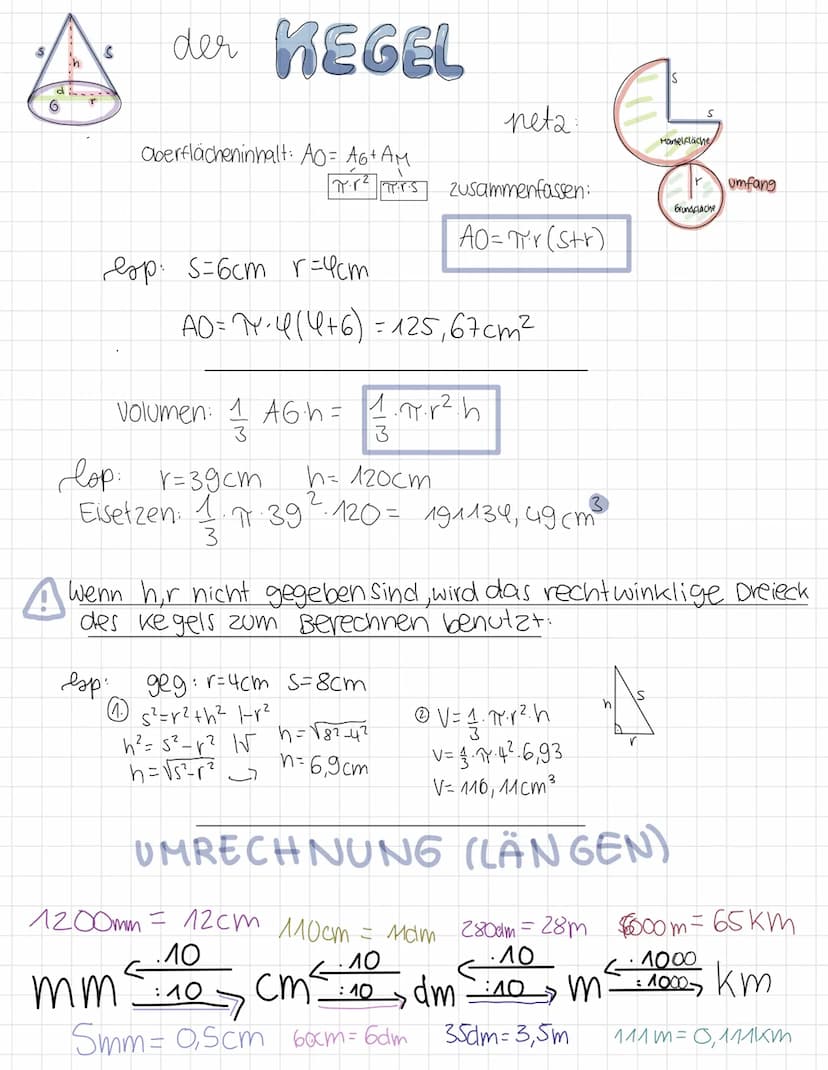 der KEGEL
s s
h
d
r
G
netz:
s
s
Mantelfläche
r
Umfang
Grundfläche
Oberflächeninhalt: AO = AG + AM
π·r² π·r·s
zusammenfassen:
AO = π·r (s+r)
bsp: s=6cm r=4cm
AO = π·4(4+6) = 125,67cm²
Volumen: 1/3 AG·h = 1/3·π·r²·h
bsp: r=39cm h= 120cm
Eisetzen: 1/3·π·39²·120= 191134,49cm³
! Wenn h,r nicht gegeben sind, wird das rechtwinklige Dreieck
des Kegels zum Berechnen benutzt.
bsp: geg: r=4cm s=8cm
h s
r
① s²=r²+h² |-r²
h²= s²-r² |√
h=√s²-r²
h=√8²-4²
h= 6,9cm
② V= 1/3·π·r²·h
V= 1/3·π·4²·6,93
V= 116,11cm³
UMRECHNUNG (LÄNGEN)
1200mm = 12cm 110cm = 11dm 280dm = 28m 6500m = 65km
·10 ·10 ·10 ·1000
mm cm dm m km
:10 :10 :10 :1000
5mm = 0,5cm 60cm = 6dm 35dm = 3,5m 111m = 0,111km